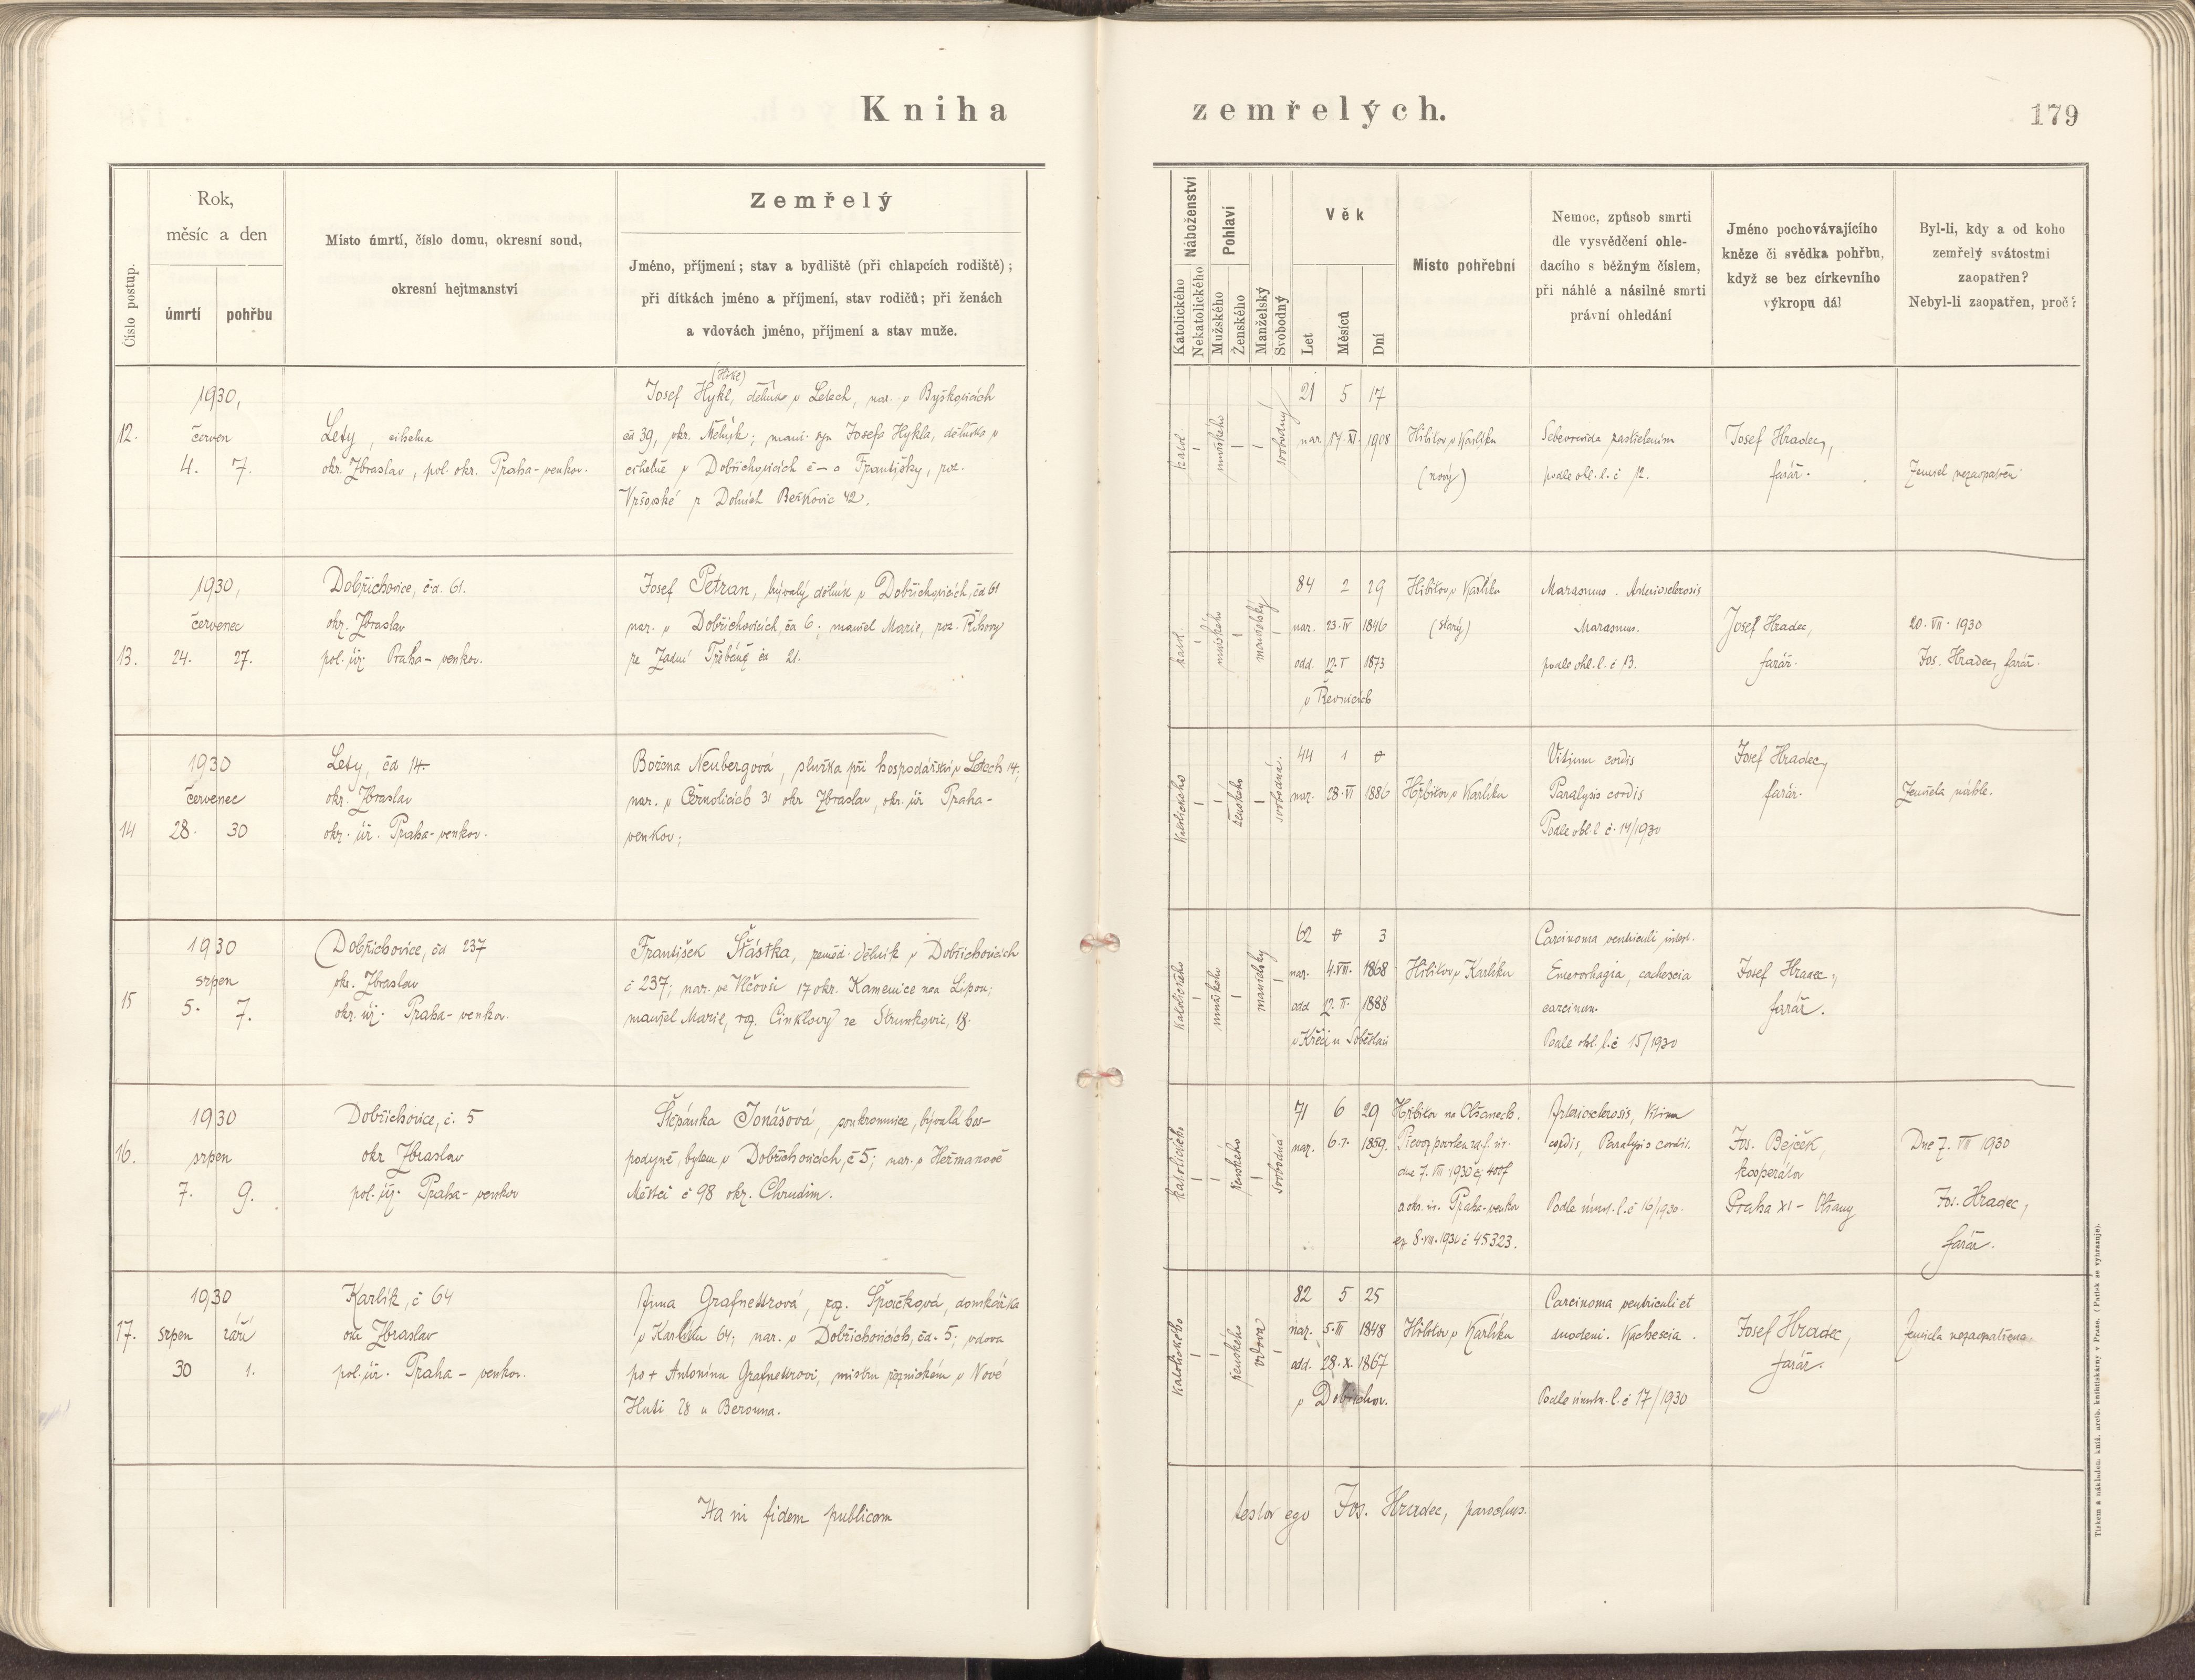 Kniha zemřelých.
179
Číslo postup.
Rok,
měsíc a den
úmrtí
pohřbu
Místo úmrtí, číslo domu, okresní soud,
okresní hejtmanství
Zemřelý
Jméno, příjmení; stav a bydliště (při chlapcích rodiště);
při dítkách jméno a příjmení, stav rodičů; při ženách
a vdovách jméno, příjmení a stav muže.
Náboženství
Katolického
Nekatolického
Pohlaví
Mužského
Ženského
Manželský
Svobodný
Věk
Let
Měsíců
Dní
Místo pohřební
Nemoc, způsob smrti
dle vysvědčení ohle-
dacího s běžným číslem,
při náhlé a násilné smrti
právní ohledání
Jméno pochovávajícího
kněze či svědka pohřbu,
když se bez církevního
výkropu dál
Byl-li, kdy a od koho
zemřelý svátostmi
zaopatřen?
Nebyl-li zaopatřen, proč?
12.
1930,
červen
4. 7.
Lety, cihelna
okr. Zbraslav, pol. okr. Praha-venkov.
Josef Hykl, dělník v Letech, nar. v Byškovicích
čd 39, okr. Mělník; manž. syn Josefa Hykla, dělníka v
cihelně v Dobřichovicích č — a Františky, roz.
Vršovské z Dolních Beřkovic 42.
katol.
mužského
svobodný
21 5 17
nar. 17. XI. 1908
Hřbitov v Karlíku
(nový)
Sebevražda zastřelením
podle ohl. l. č 12.
Josef Hradec,
farář.
Zemřel nezaopatřen
13.
1930,
červenec
24. 27.
Dobřichovice, čd. 61.
okr. Zbraslav
pol. úř. Praha-venkov.
Josef Petran, bývalý dělník v Dobřichovicích, čd 61
nar. v Dobřichovicích, čd 6; manžel Marie, roz. Říhovy
ze Zadní Třebáně čd 21.
katol.
mužského
manželský
84 2 29
nar. 23. IV 1846
odd. 12. I 1873
v Řevnicích
Hřbitov v Karlíku
(starý)
Marasmus. Arteriosclerosis
Marasmus.
podle ohl. l. č 13.
Josef Hradec,
farář.
20. VII. 1930
Jos. Hradec, farář.
14
1930
červenec
28. 30
Lety, čd 14.
okr. Zbraslav
okr. úř. Praha-venkov.
Božena Neubergová, služka při hospodářství v Letech 14;
nar. v Černolicích 31 okr Zbraslav, okr. úř Praha-
venkov;
katolického
ženského
svobodná.
44 1 0
nar. 28. VI 1886
Hřbitov v Karlíku
Vitium cordis
Paralysis cordis
Podle ohl l č. 14/1930
Josef Hradec,
farář.
Zemřela náhle.
15
1930
srpen
5. 7.
Dobřichovice, čd 237
okr. Zbraslav
okr. úř. Praha-venkov.
František Šťástka, zeměd. dělník v Dobřichovicích
č 237; nar. ve Vlčovsi 17 okr. Kamenice nad Lipou;
manžel Marie, roz. Cinklovy ze Strunkovic, 18.
katolického
mužského
manželský
62 0 3
nar. 4. VIII. 1868
odd 12. II. 1888
Hřbitov v Karlíku
Carcinoma ventriculi
cachexia
carcinom.
Podle ohl. l. č 15/1930
Josef Hradec,
farář.
16.
1930
srpen
7. 9.
Dobřichovice, č. 5
okr Zbraslav
pol. úř. Praha-venkov
Štěpánka Jonášová, soukromnice, bývalá hos-
podyně, bytem v Dobřichovicích, č 5; nar. v Heřmanově
Městci č 98 okr. Chrudim.
katolického
ženského
svobodná
71 6 29
nar. 6. I. 1859.
Hřbitov na Olšanech.
Převoz povolen
dne 7. VIII 1930
a okr. úř. Praha-venkov
8. VIII. 1930 č 45323.
Arteriosclerosis, Vitium
cordis, Paralysis cordis.
Podle úmrt. l. č 16/1930.
Jos. Bejček,
kooperátor
Praha XI – Olšany
Dne 7. VII 1930
Jos. Hradec,
farář.
17.
1930
srpen září
30 1.
Karlík, č 64
okr Zbraslav
pol. úř. Praha – venkov.
Anna Grafnettrová, roz. Špačková, domkářka
v Karlíku 64; nar. v Dobřichovicích, čd. 5; vdova
po + Antonínu Grafnettrovi, mistru řeznickém v Nové
Huti 28 u Berouna.
katolického
ženského
vdova
82 5 25
nar. 5. III 1848
odd. 28. X. 1867
v Dobřichov.
Hřbitov v Karlíku
Carcinoma ventriculi et
duodeni. Kachexia.
Podle úmrtn. l. č 17/1930
Josef Hradec,
farář.
Zemřela nezaopatřena.
Ita in fidem publicam
testor ego Jos. Hradec, parochus.